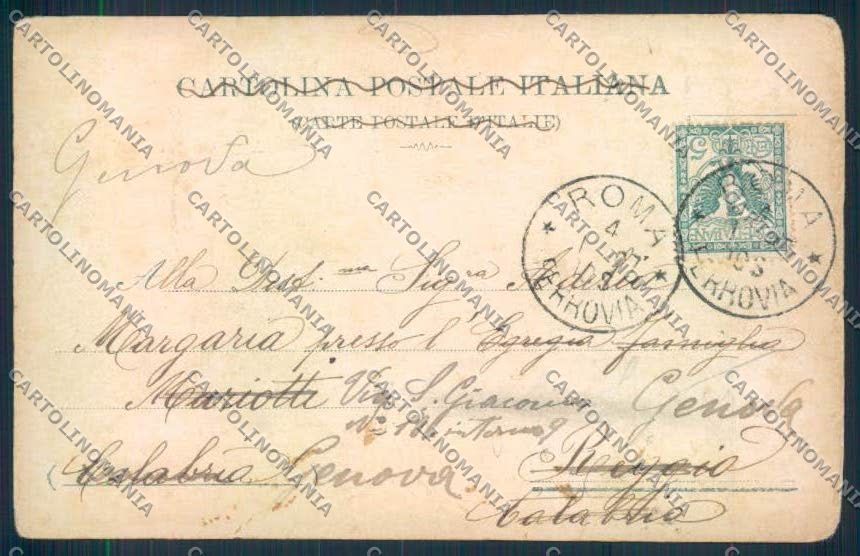 CARTOLINA POSTALE ITALIANA
(CARTE POSTALE D'ITALIE)
Genova
5
ROMA
4
FERROVIA
ROMA
FERROVIA
Alla Sig.ra
Margaria presso l'Egregia famiglia
Mariotti Via S. Giacomo Genova
No interno 9
Calabria Genova Reggio
Calabria
CARTOLINOMANIA